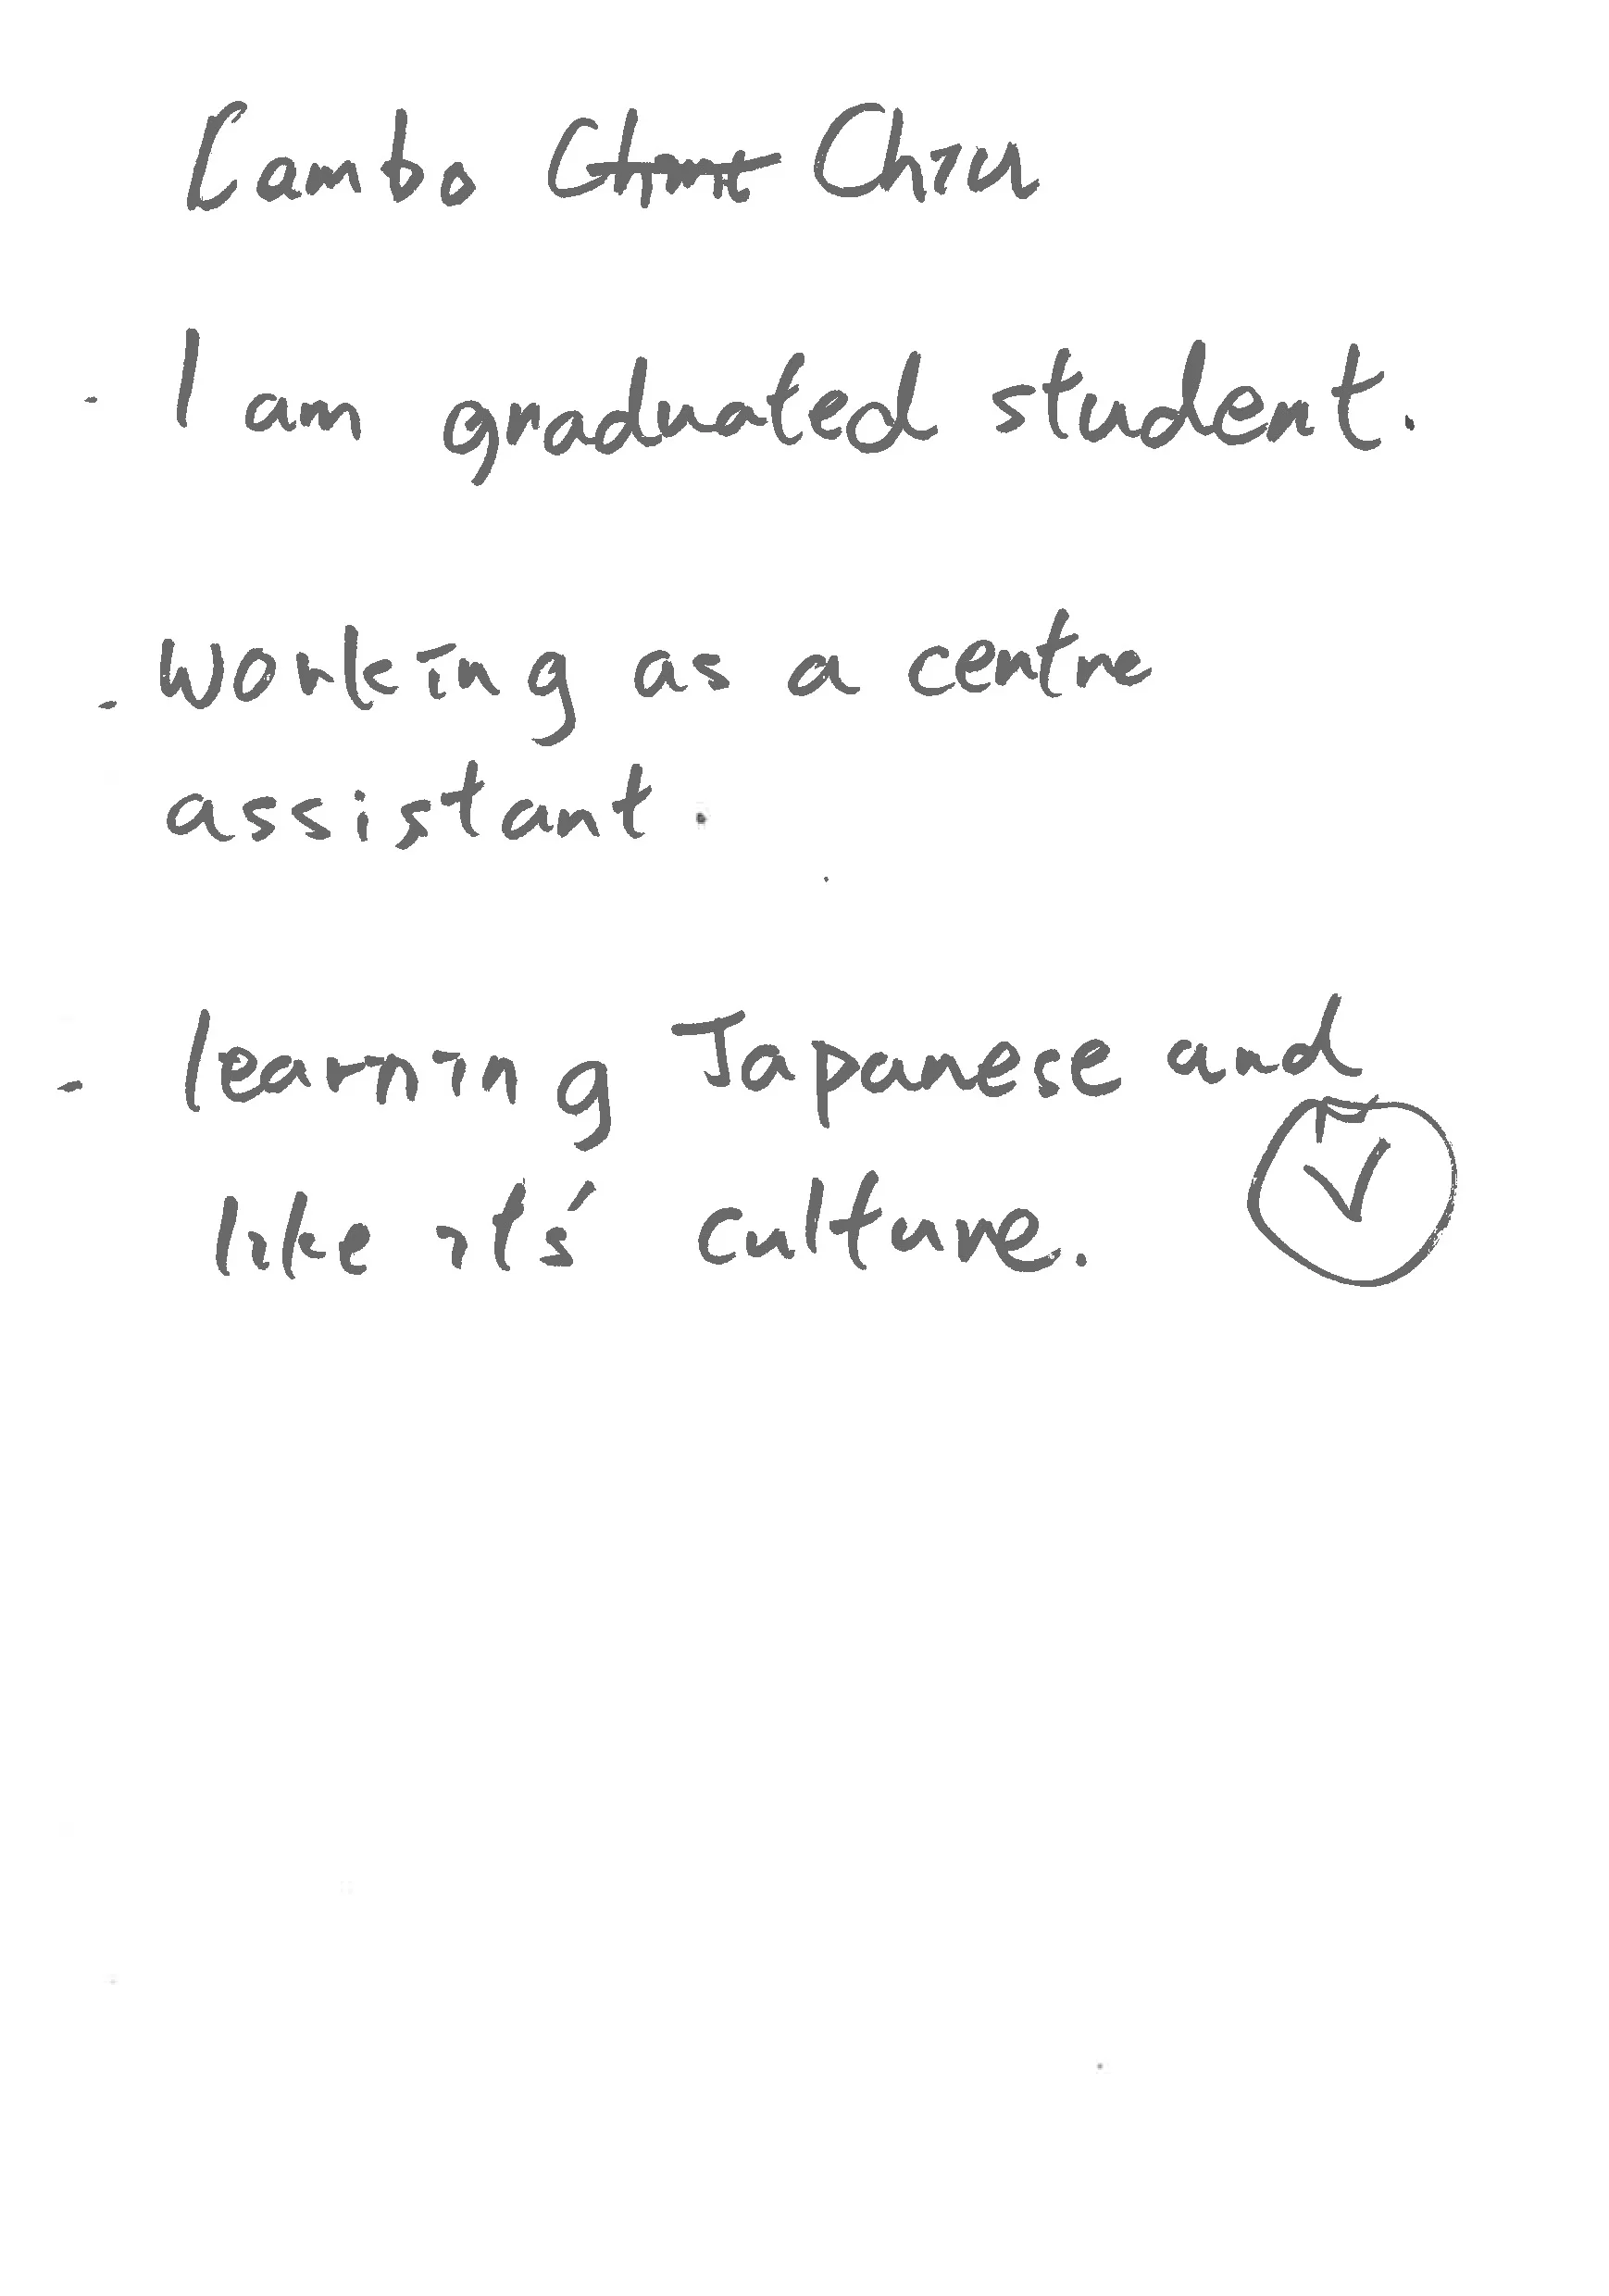 Cambo Chiu
- I am graduated student.
- Working as a centre
assistant.
- learning Japanese and
like it's culture.